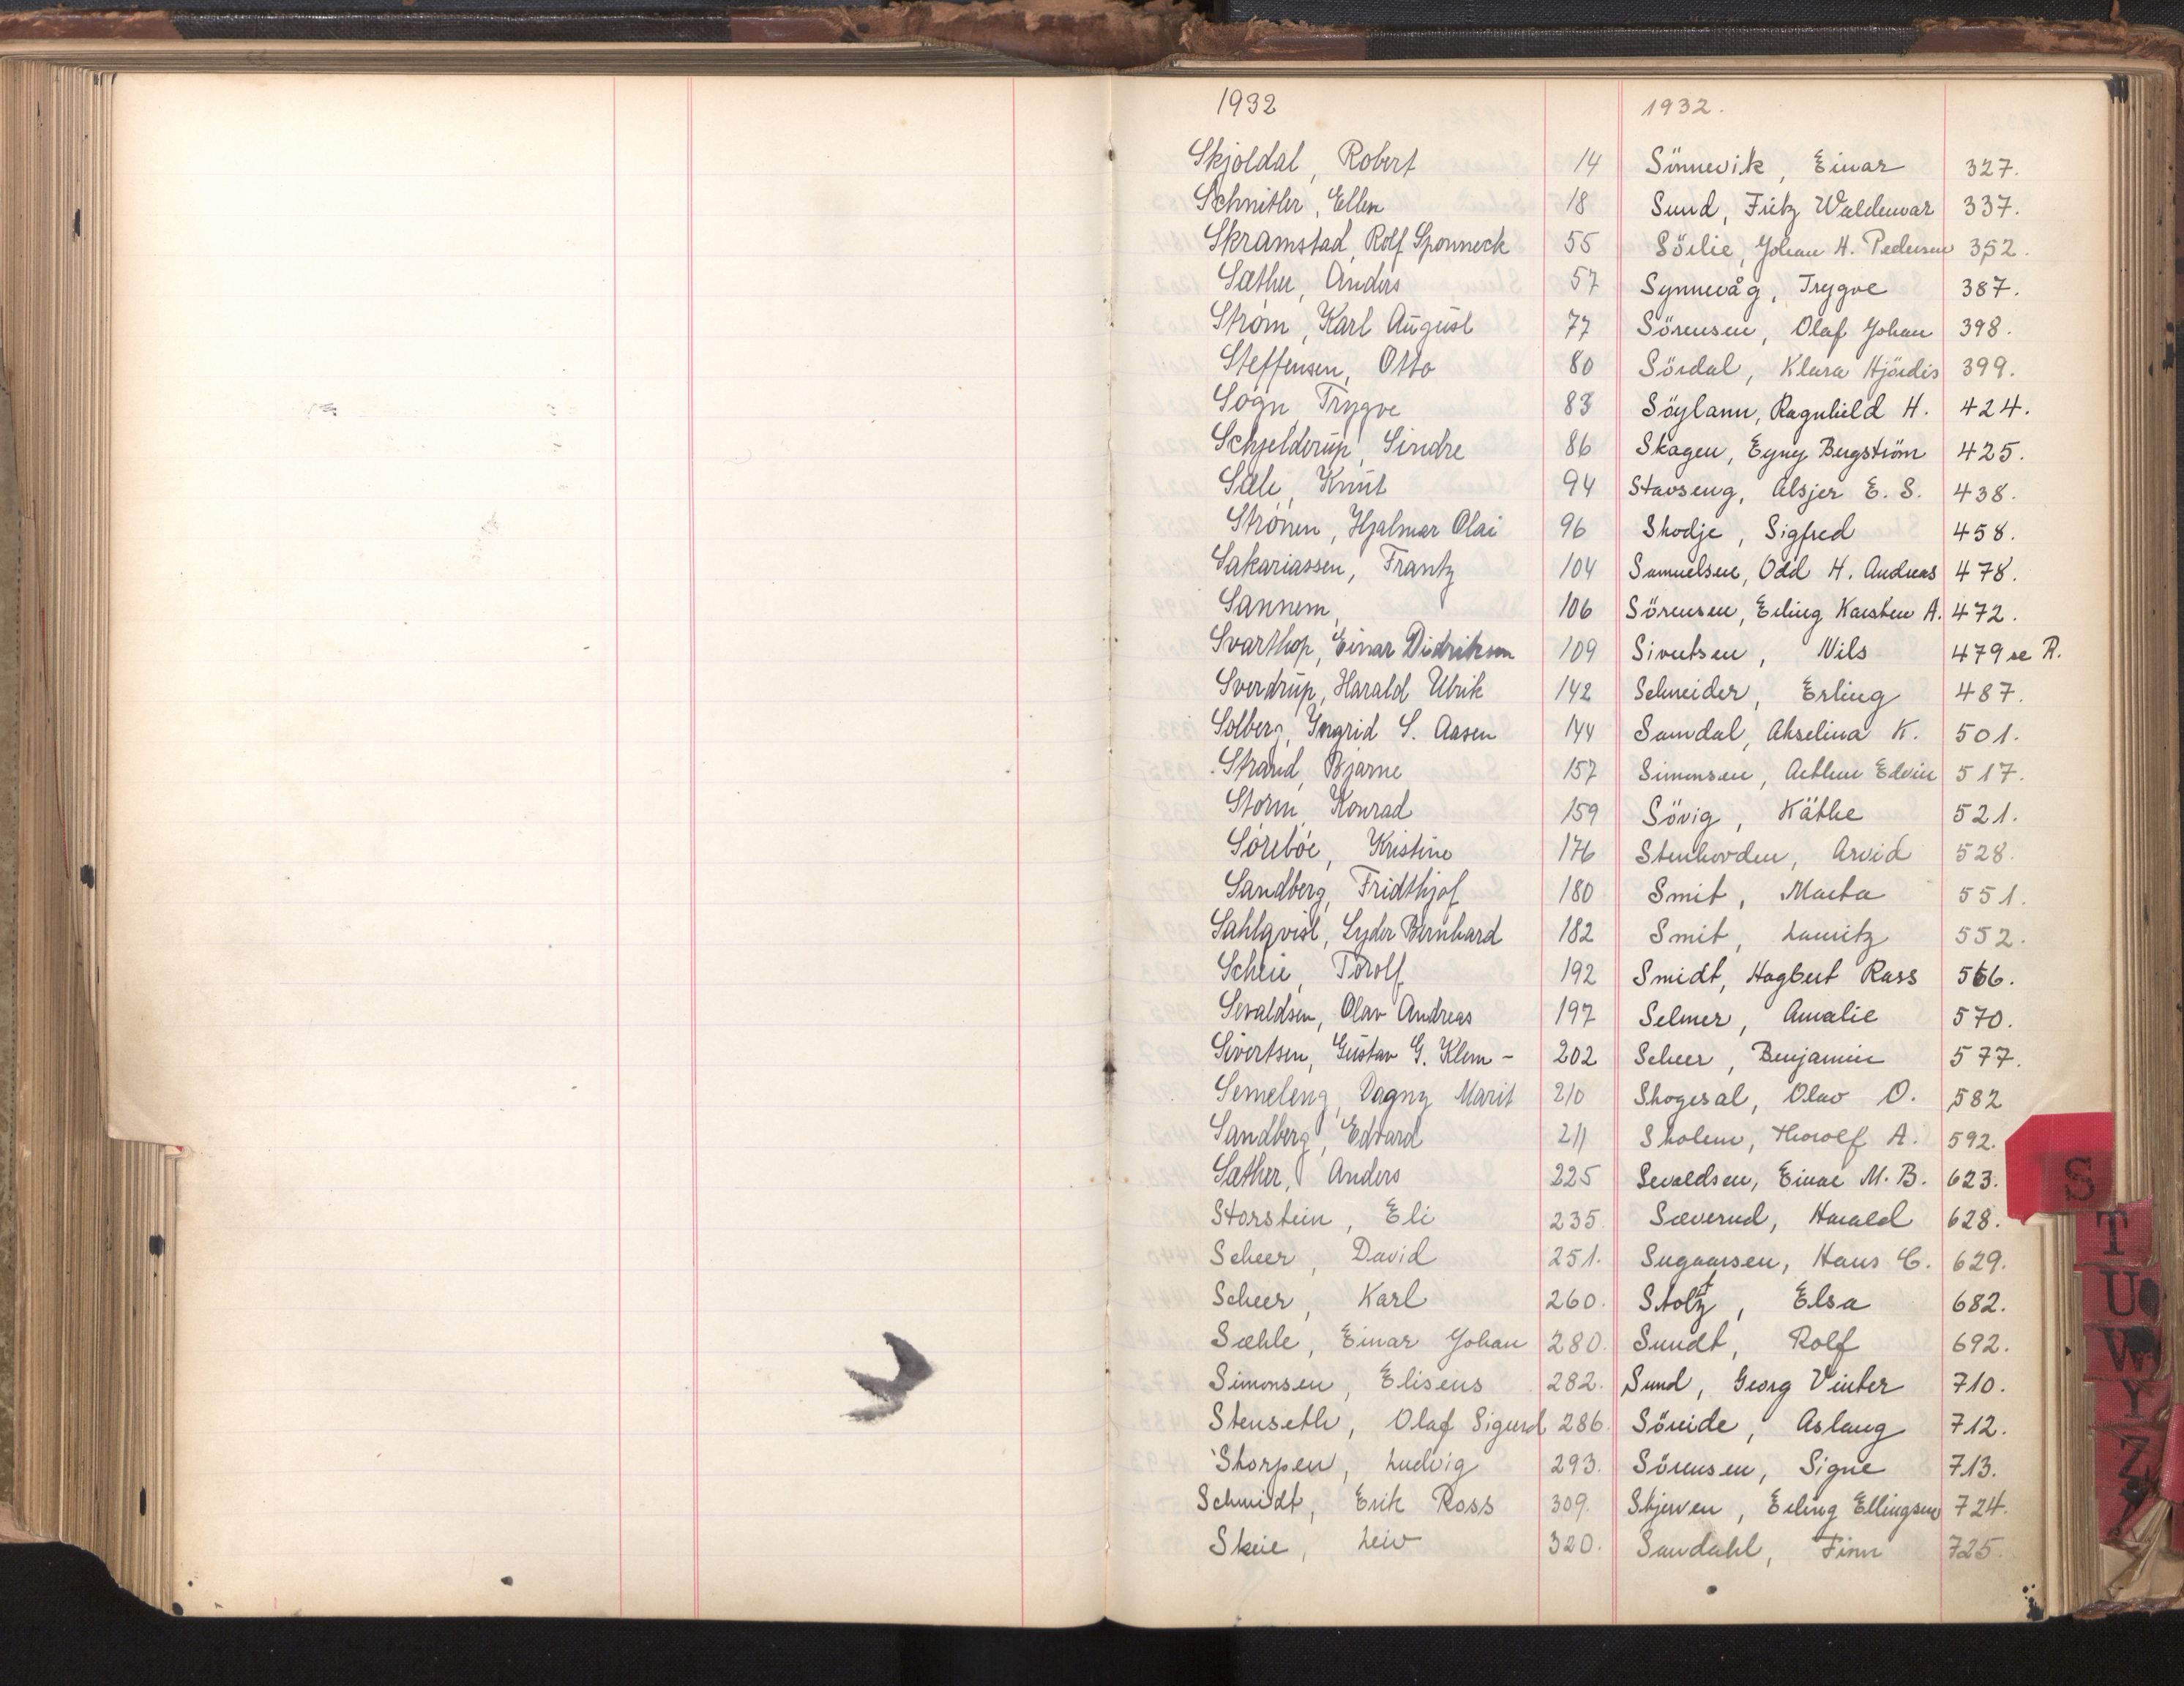 1932
Skjoldal, Robert 14
Schnitler, Ellen 18
Skramstad, Rolf Sponneck 55
Sæther, Anders 57
Strøm, Karl August 77
Steffensen, Otto 80
Sogn Trygve 83
Schjelderup, Sindre 86
Sæle, Knut 94
Strönen, Hjalmar Olai 96
Sakariassen, Frantz 104
Sannem, 106
Svarthop, Einar Didriksen 109
Sverdrup, Harald Ulrik 142
Solberg, Yngrid S. Aasen 144
Strand, Bjarne 157
Storm, Konrad 159
Sörebøe, Kristine 176
Sandberg, Fridthjof 180
Sahlqvist, Lyder Bernhard 182
Scheie, Torolf 192
Sevaldsen, Olav Andreas 197
Sivertsen, Gustav G. Klem - 202
Semeleng, Dagny Marit 210
Sandberg, Edvard 211
Sæther, Anders 225
Storstein, Eli 235
Scheer, David 251.
Scheer, Karl 260.
Sæhle, Einar Johan 280.
Simonsen, Eliseus 282.
Stenseth, Olaf Sigurd 286.
Skorpen, Ludvig 293.
Schmidt, Erik Ross 309.
Skeie, Leiv 320.
1932.
Sönnevik, Einar 327.
Sund, Fritz Waldemar 337.
Sörlie, Johan H. Pedersen 352.
Synnevåg, Trygve 387.
Sörensen, Olaf Johan 398.
Sördal, Klara Hjördis 399.
Söylann, Ragnhild H. 424.
Skagen, Bergström 425.
Stavseng, Alsjer E. S. 438.
Skodje, Sigfred 458.
Samuelsen, Odd H. Andreas 478.
Sörensen, Erling Karsten A. 472.
Sivertsen, Nils 479 se R.
Schneider, Erling 487.
Samdal, Akselina K. 501.
Simonsen, Arthur Edvin 517.
Sövig, Käthe 521.
Stenhovden, Arvid 528.
Smit, Marta 551.
Smit, Lauritz 552.
Smidt, Hagbert Rass 566.
Selmer, Amalie 570.
Scheer, Benjamin 577.
Skogesal, Olav O. 582
Skolem, Thorolf A. 592.
Sevaldsen, Einar M. B. 623.
Sæverud, Harald 628.
Sugaarsen, Hans C. 629.
Stoltz, Elsa 682.
Sundt, Rolf 692.
Sund, Georg Vinter 710.
Söreide, Aslaug 712.
Sörensen, Signe 713.
Skjerven, Erling Ellingsen 724.
Sandahl, Finn 725.
S
T
U
W
Y
Z